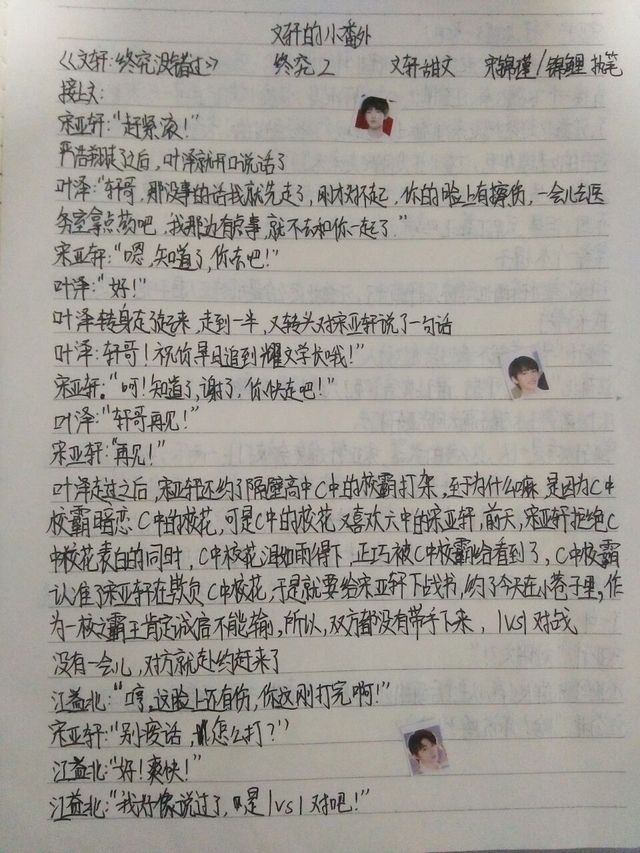 文轩的小番外
《文轩:终究没错过》 终究2 文轩甜文 宋锦瑾/锦鲤 执笔
接上文:
宋亚轩:“赶紧滚!”
严浩翔走了之后,叶泽就开口说话了
叶泽:“轩哥,那没事的话我就先走了,刚才对不起,你的脸上有擦伤,一会儿去医
务室拿点药吧,我那边有点事,就不去和你一起了.”
宋亚轩:“嗯,知道了,你去吧!”
叶泽:“好!”
叶泽转身走了起来,走到一半,又转头对宋亚轩说了一句话
叶泽:轩哥!祝你早日追到耀文学长哦!”
宋亚轩:“呵!知道了,谢了,你快走吧!”
叶泽:“轩哥再见!”
宋亚轩:“再见!”
叶泽走过之后,宋亚轩还约了隔壁高中C中的校霸打架,至于为什么嘛,是因为C中
校霸暗恋C中的校花,可是C中的校花又喜欢六中的宋亚轩,前天,宋亚轩拒绝C
中校花表白的同时,C中校花泪如雨得下,正巧被C中校霸给看到了,C中校霸
认准了宋亚轩在欺负C中校花,于是就要给宋亚轩下战书,约了今天在小巷子里,作
为一校之霸王肯定诚信不能输,所以,双方都没有带手下来,1vs1对战
没有一会儿,对方就赴约赶来了
江益北:“哼,这脸上还有伤,你这刚打完啊!”
宋亚轩:“别废话,怎么打?”
江益北:“好!爽快!”
江益北:“我好像说过了,是1vs1对吧!”